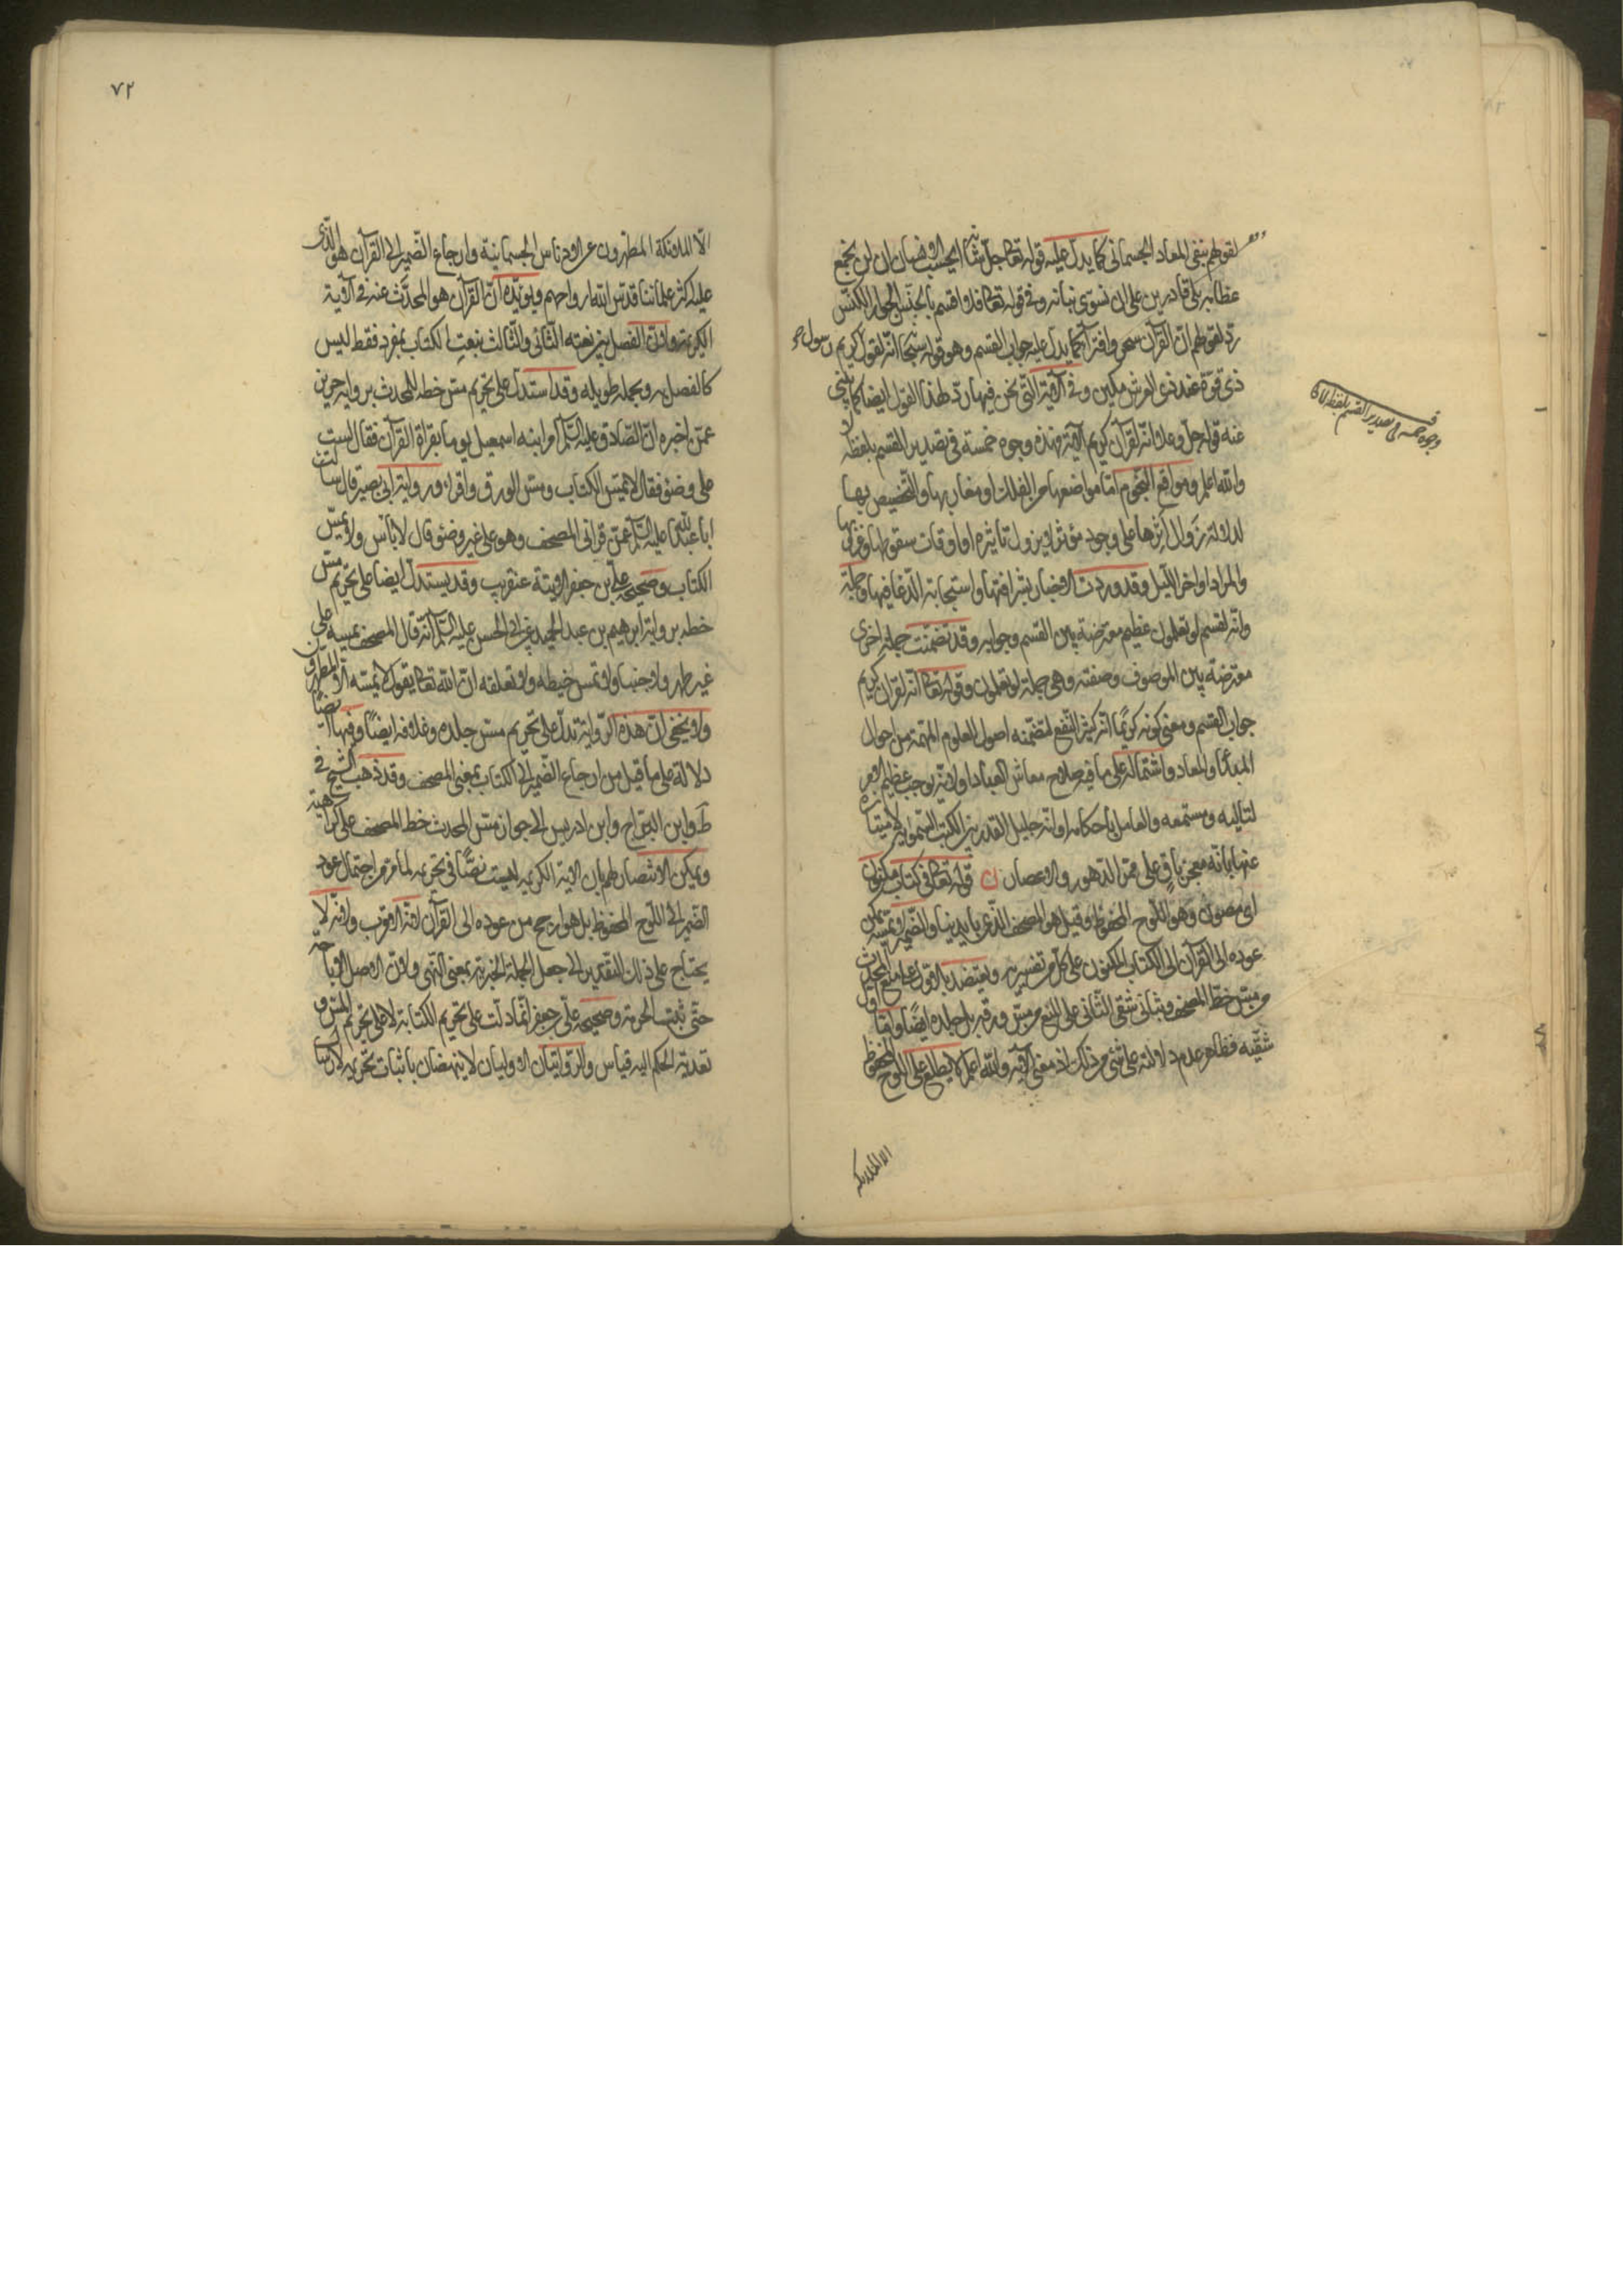 لقولهم بنفي المعاد الجسماني كما يدل عليه قوله تعالى جل شانه ايحسب الانسان ان لن نجمع
عظامه بلى قادرين على ان نسوي بنانه وفي قوله تعالى فلا اقسم بالخنس الجوار الكنس
رد لقولهم ان القرآن سحر وافتراء كما يدل عليه جواب القسم وهو قوله سبحانه انه لقول رسول كريم
ذي قوة عند ذي العرش مكين وفي الآية التي نحن فيها رد لهذا القول ايضا كما ينبئ
عنه قوله جل وعلا انه لقرآن كريم الآية فهذه وجوه خمسة في تصدير القسم بلفظة لا
والله اعلم ومواقع النجوم اما مواضعها من الفلك او مغاربها والتخصيص بها
لدلالة زوال اثرها على وجود مؤثر لا يزول تاثيره او اوقات سقوطها وغروبها
والمراد اواخر الليل وقد وردت الاخبار بشرافتها واستجابة الدعا فيها وجملة
وانه لقسم لو تعلمون عظيم معترضة بين القسم وجوابه وقد تضمنت جملة اخرى
معترضة بين الموصوف وصفته وهي جملة لو تعلمون وقوله تعالى انه لقرآن كريم
جواب القسم ومعنى كونه كريمًا انه كثير النفع لتضمنه اصول العلوم المهمة من احوال
المبدأ والمعاد واشتماله على ما فيه صلاح معاش العباد او لانه يوجب عظيم الاجر
لتاليه ومستمعه والعامل باحكامه او انه جليل القدر بين الكتب السماوية لامتيازه
عنها بانه معجز باق على ممر الدهور والاعصار قوله تعالى في كتاب مكنون
اي مصون وهو اللوح المحفوظ وقيل هو المصحف الذي بايدينا والضمير في لا يمسه يمكن
عوده الى القرآن والى الكتاب المكنون على كل من تفسيريه ويعتضد بالاول على منع المحدث
من مس خط المصحف وبثاني شقي الثاني على المنع من مس ورقه بل جلده ايضًا واما اول
شقيه فظاهر عدم دلالته على شئ من ذلك اذ معنى الآية والله اعلم لا يطلع على اللوح المحفوظ
الا الملائكة
وجوه خمسة في تصدير القسم بلفظة لا
٧٢
الا الملائكة المطهرون عن الادناس الجسمانية وارجاع الضمير الى القرآن هو الذي
عليه اكثر علمائنا قدس الله ارواحهم ويؤيده ان القرآن هو المحدث عنه في الآية
الكريمة ولان الفصل بين نعته الثاني والثالث بنعت الكتاب بمفرد فقط ليس
كالفصل به وبجملة طويلة وقد استدل على تحريم مس خطه للمحدث برواية حريز
عمن اخبره ان الصادق عليه السلم امر ابنه اسمعيل يوما بقراة القرآن فقال لست
على وضوء فقال لا تمس الكتاب ومس الورق واقراء ورواية ابي بصير قال سالت
ابا عبد الله عليه السلم عمن قرا في المصحف وهو على غير وضوء قال لا بأس ولا يمس
الكتاب وصحيحة علي بن جعفر الآتية عنقريب وقد يستدل ايضا على تحريم مس
خطه برواية ابرهيم بن عبد الحميد عن ابي الحسن عليه السلم انه قال المصحف لا تمسه على
غير طهر ولا جنبا ولا تمس خيطه ولا تعلقه ان الله تعالى يقول لا يمسه الا المطهرون
ولا يخفى ان هذه الرواية تدل على تحريم مس جلده وغلافه ايضًا وفيها ايضًا
دلالة على ما قيل من ارجاع الضمير الى الكتاب بمعنى المصحف وقد ذهب الشيخ في
ط وابن البراج وابن ادريس الى جواز مس المحدث خط المصحف على كراهية
ويمكن الانتصار لهم بان الآية الكريمة ليست نصًّا في تحريمه لما مر من احتمال عود
الضمير الى اللوح المحفوظ بل هو ارجح من عوده الى القرآن لانه الاقرب ولانه لا
يحتاج على ذلك التقدير الى جعل الجملة الخبرية بمعنى النهي ولان الاصل الاباحة
حتى يثبت الحرمة وصحيحة علي بن جعفر انما دلت على تحريم الكتابة لا على تحريم المس و
تعدية الحكم اليه قياس والروايتان الاوليان لا ينهضان باثبات تحريمه لارسال